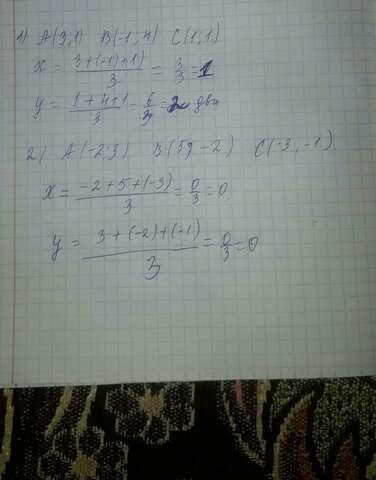 1) A(3,1) B(-1,4) C(1,1)
x = 3+(-1)+1) / 3 = 3/3 = 1
y = 1+4+1 / 3 = 6/3 = 2 два
2) A(-2;3) B(5; -2) C(-3, -1)
x = -2+5+(-3) / 3 = 0/3 = 0
y = 3+(-2)+(-1) / 3 = 0/3 = 0